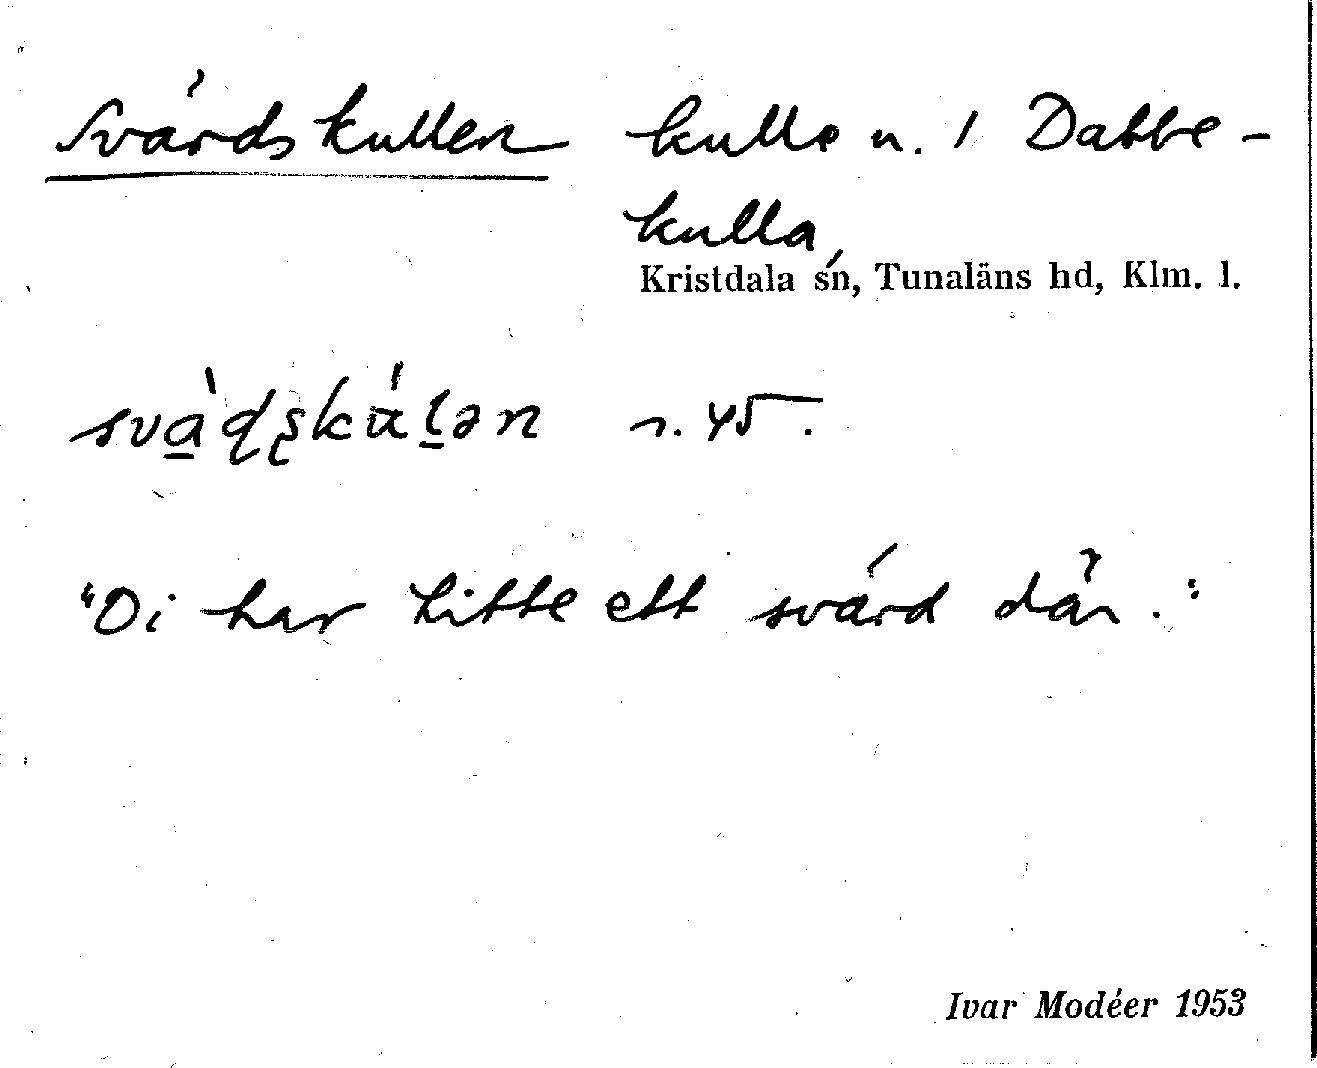 Svärdskullen kulle n. 1 Dabbe-
kulla,
Kristdala sn, Tunaläns hd, Klm. l.
r. 45.
"Di har hitte ett svärd där."
Ivar Modéer 1953